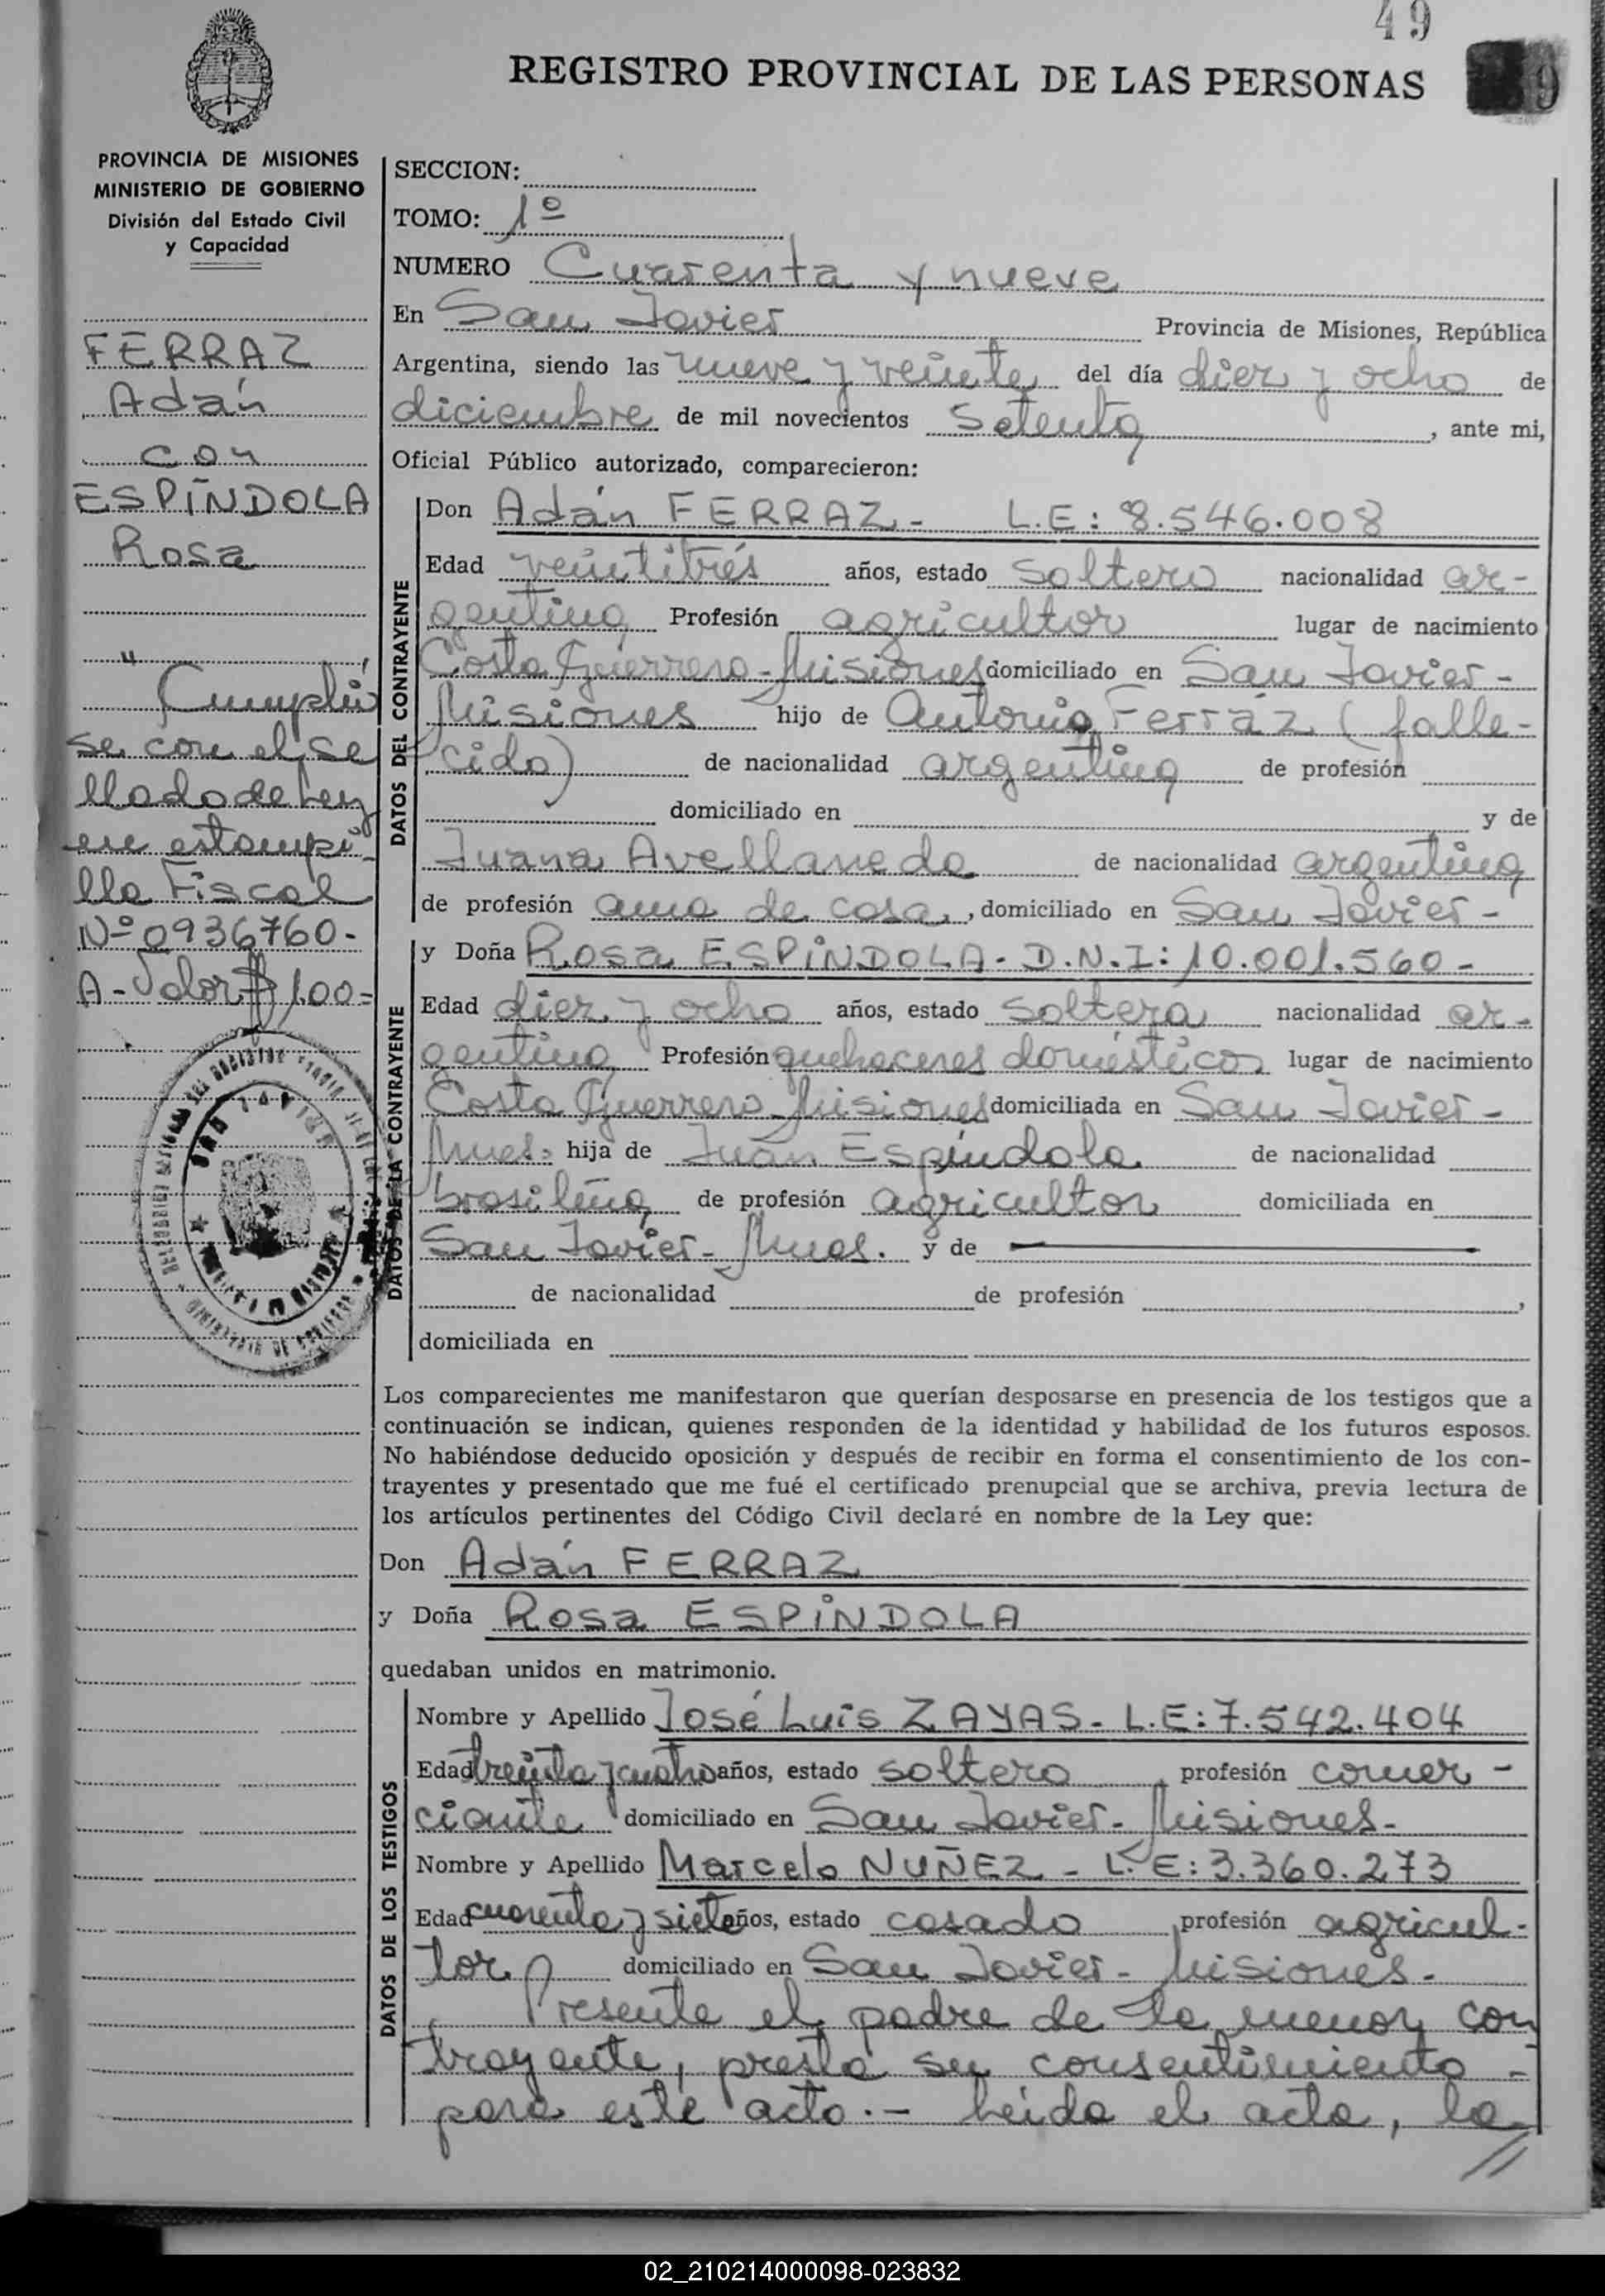 49
REGISTRO PROVINCIAL DE LAS PERSONAS
9
PROVINCIA DE MISIONES
MINISTERIO DE GOBIERNO
División del Estado Civil
y Capacidad
FERRAZ
Adán
con
ESPÍNDOLA
Rosa
"Cumplió
se con el se
llado de Ley
en estampi-
lla Fiscal
Nº 0936760.-
A- Valor $ 1.00=
SECCION:
TOMO: 1º
NUMERO Cuarenta y nueve
En San Javier Provincia de Misiones, República
Argentina, siendo las nueve y veinte del día diez y ocho de
diciembre de mil novecientos setenta, ante mi,
Oficial Público autorizado, comparecieron:
DATOS DEL CONTRAYENTE
Don Adán FERRAZ.- L.E: 8.546.008
Edad veintitrés años, estado soltero nacionalidad ar-
gentina Profesión agricultor lugar de nacimiento
Costa Guerrero-Misiones domiciliado en San Javier-
Misiones hijo de Antonio Ferráz (falle-
cido) de nacionalidad argentina de profesión
domiciliado en y de
Juana Avellaneda de nacionalidad argentina
de profesión ama de casa, domiciliado en San Javier-
DATOS DE LA CONTRAYENTE
y Doña Rosa ESPÍNDOLA- D.N.I: 10.001.560-
Edad diez y ocho años, estado soltera nacionalidad ar-
gentina Profesión quehaceres domésticos lugar de nacimiento
Costa Guerrero-Misiones domiciliada en San Javier-
Mnes. hija de Juan Espíndola de nacionalidad
brasileña, de profesión agricultor domiciliada en
San Javier- Mnes. y de
de nacionalidad de profesión ,
domiciliada en
Los comparecientes me manifestaron que querían desposarse en presencia de los testigos que a
continuación se indican, quienes responden de la identidad y habilidad de los futuros esposos.
No habiéndose deducido oposición y después de recibir en forma el consentimiento de los con-
trayentes y presentado que me fué el certificado prenupcial que se archiva, previa lectura de
los artículos pertinentes del Código Civil declaré en nombre de la Ley que:
Don Adán FERRAZ
y Doña Rosa ESPÍNDOLA
quedaban unidos en matrimonio.
DATOS DE LOS TESTIGOS
Nombre y Apellido José Luis ZAYAS- L.E: 7.542.404
Edad treinta y cuatro años, estado soltero, profesión comer-
ciante domiciliado en San Javier- Misiones-
Nombre y Apellido Marcelo NUÑEZ - L.E: 3.360.273
Edad cuarenta y siete años, estado casado, profesión agricul-
tor domiciliado en San Javier- Misiones.
Presente el padre de la menor con
trayente, presta su consentimiento -
para este acto.- Leida el acta, la
//
02_210214000098-023832